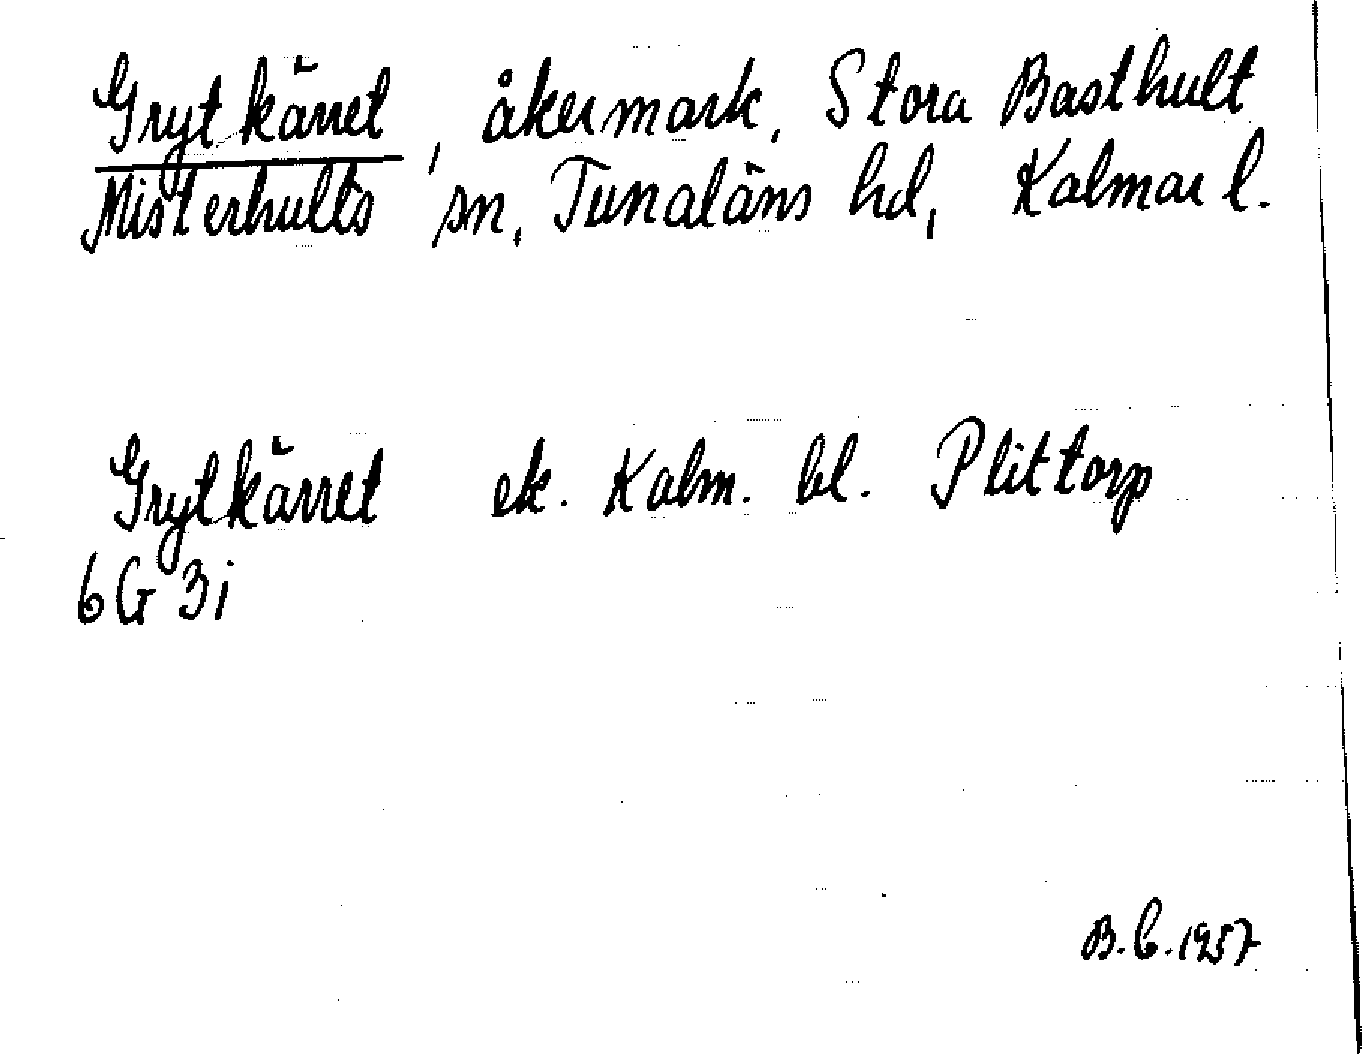 Grytkärret, åkermark, Stora Basthult
Misterhults sn, Tunaläns hd, Kalmar l.
Grytkärret ek. Kalm. bl. Plittorp
6G 3i
B.C. 1957